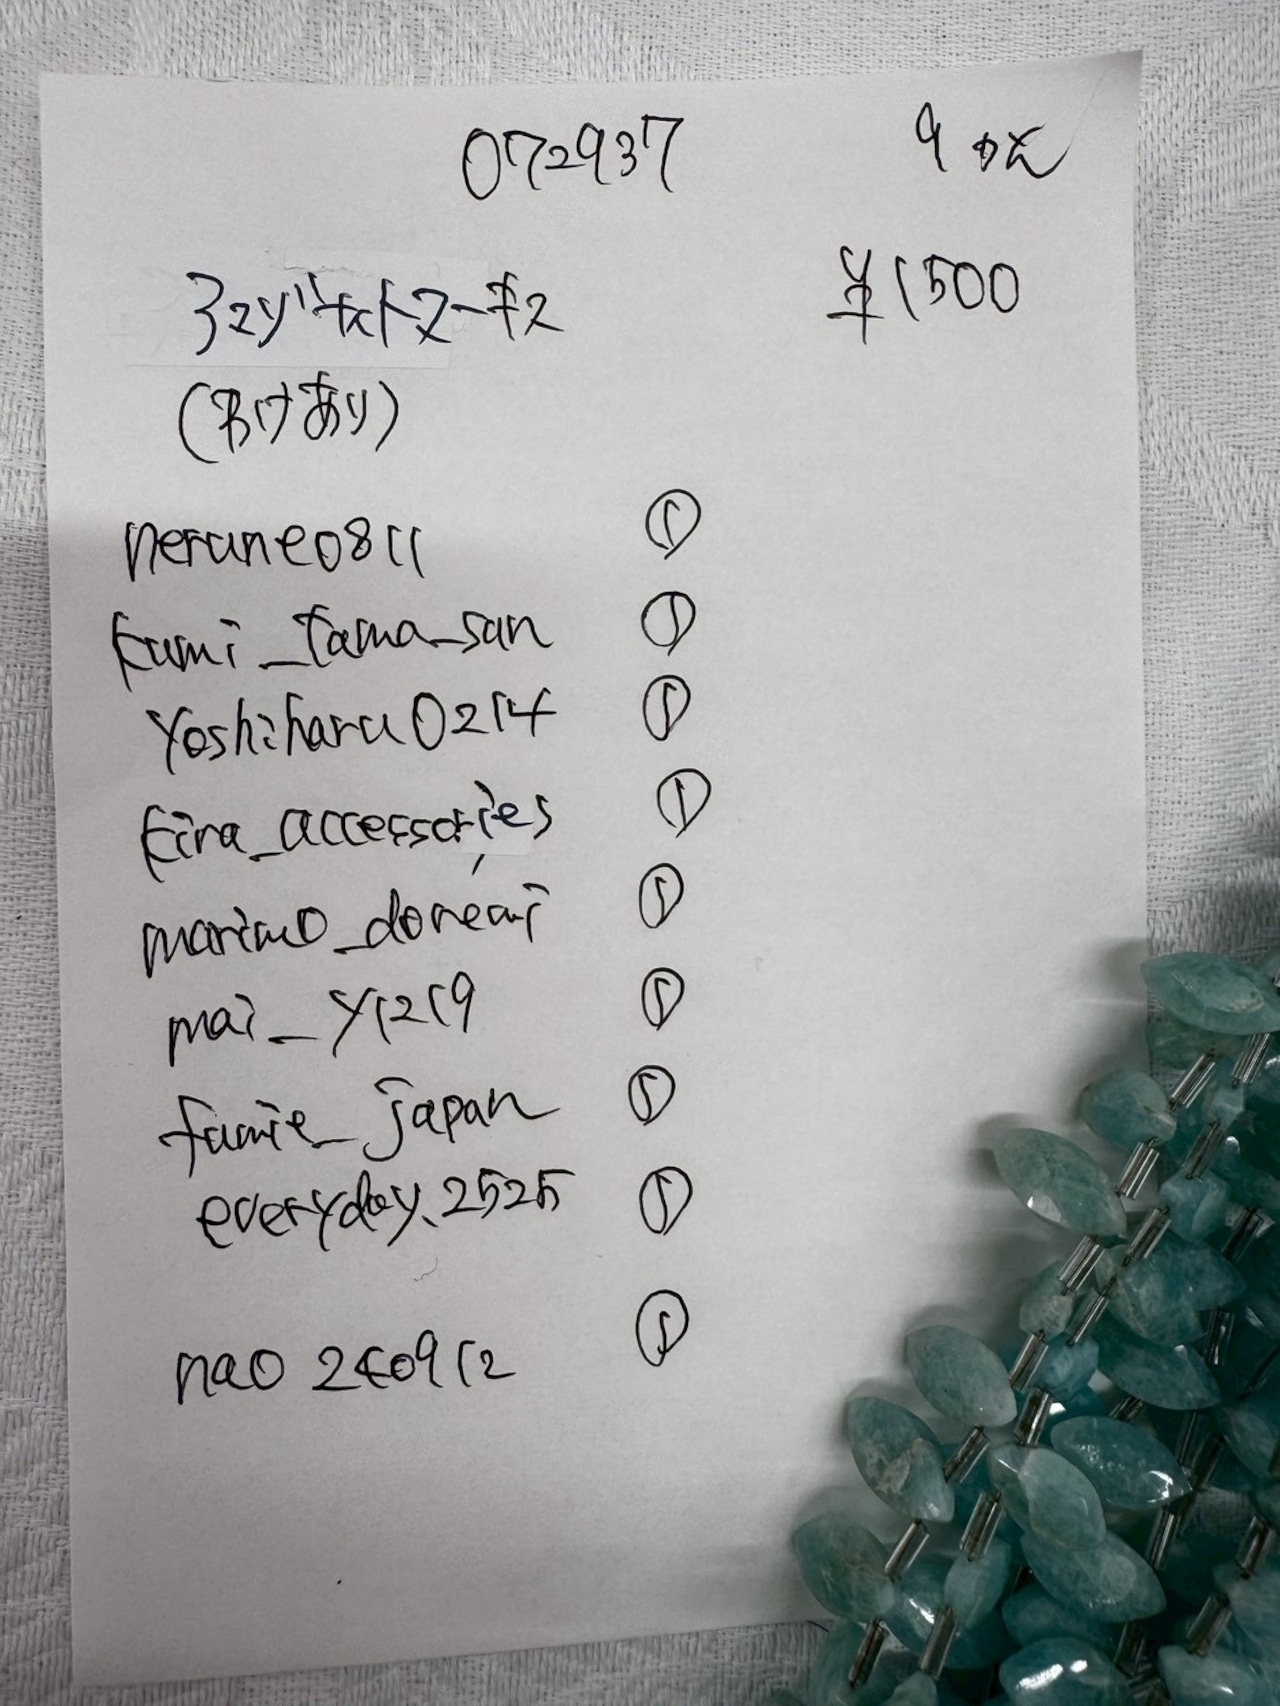 072937 9れん
アマゾナイトマーキス ¥1500
(わけあり)
nerune0811 ①
kumi_tama_san ①
yoshiharu0214 ①
kira_accessories ①
marimo_doremi ①
mai_y1219 ①
fumie_japan ①
everyday.2525 ①
nao 240912 ①